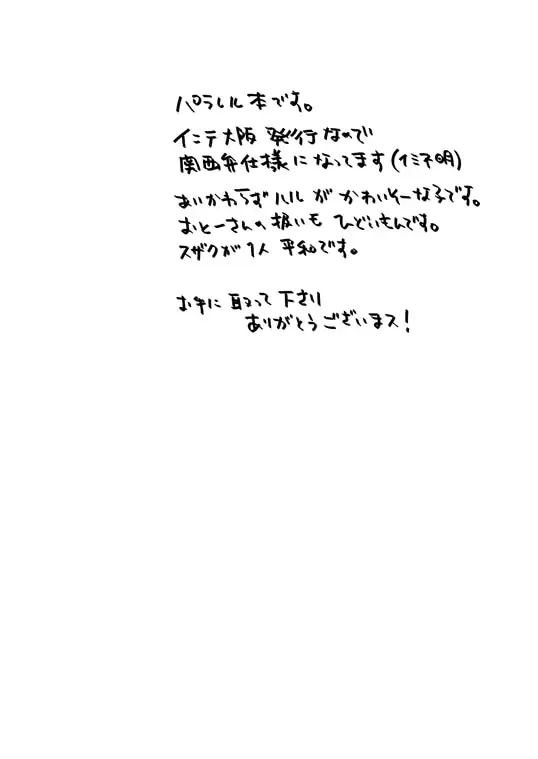 パラレル本です。
インテ大阪発行なので
関西弁仕様になってます(イミネ明)
あいかわらずルルがかわいそーな子です。
おとーさんの扱いもひどいもんです。
スザクが1人平和です。
お手に取って下さり
ありがとうございまス!